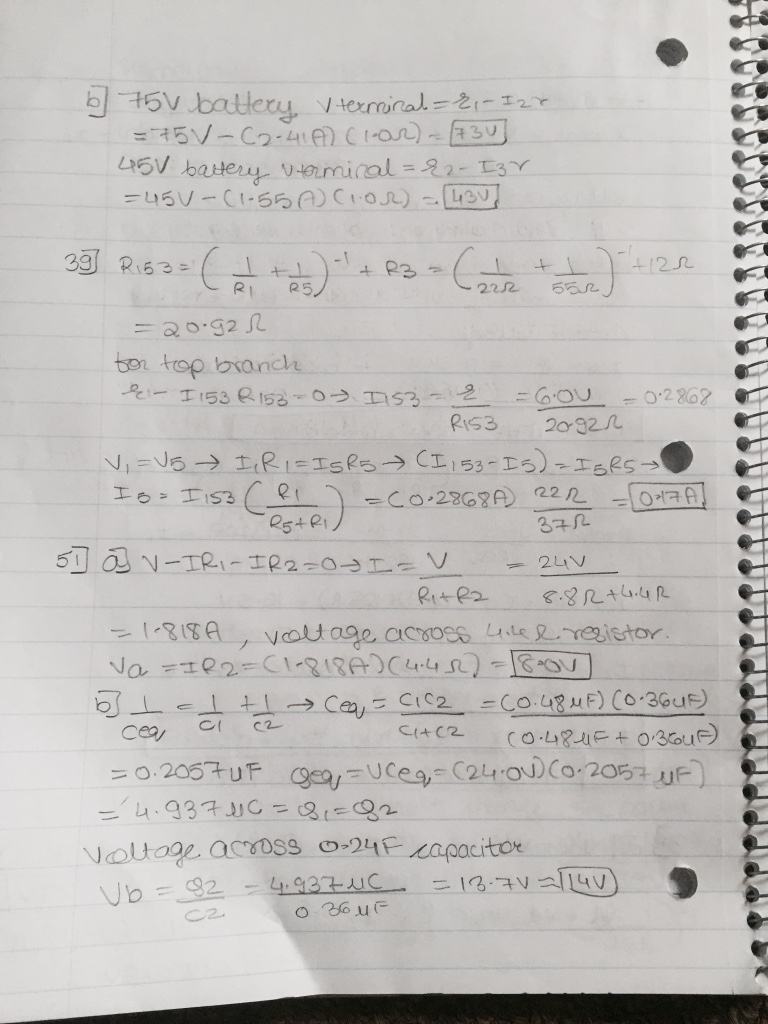 b] 75V battery Vterminal = ε1 - I2r
= 75V - (2.41A) (1.0Ω) = 73V
45V battery Vterminal = ε2 - I3r
= 45V - (1.55A) (1.0Ω) = 43V
39] R153 = (1/R1 + 1/R5)^-1 + R3 = (1/22Ω + 1/55Ω)^-1 + 12Ω
= 20.92Ω
for top branch
ε - I153 R153 = 0 → I153 = ε/R153 = 6.0V/20.92Ω = 0.2868
V1 = V5 → I1R1 = I5R5 → (I153 - I5) = I5R5 →
I5 = I153 (R1/R5+R1) = (0.2868A) 22Ω/37Ω = 0.17A
51] a] V - IR1 - IR2 = 0 → I = V/R1+R2 = 24V/8.8Ω + 4.4Ω
= 1.818A, voltage across 4.4Ω resistor.
Va = IR2 = (1.818A) (4.4Ω) = 8.0V
b] 1/Ceq = 1/C1 + 1/C2 → Ceq = C1C2/C1+C2 = (0.48μF) (0.36μF)/(0.48μF + 0.36μF)
= 0.2057μF Qeq = VCeq = (24.0V) (0.2057μF)
= 4.937μC = Q1 = Q2
Voltage across 0.24F capacitor
Vb = Q2/C2 = 4.937μC/0.36μF = 13.7V ≈ 14V